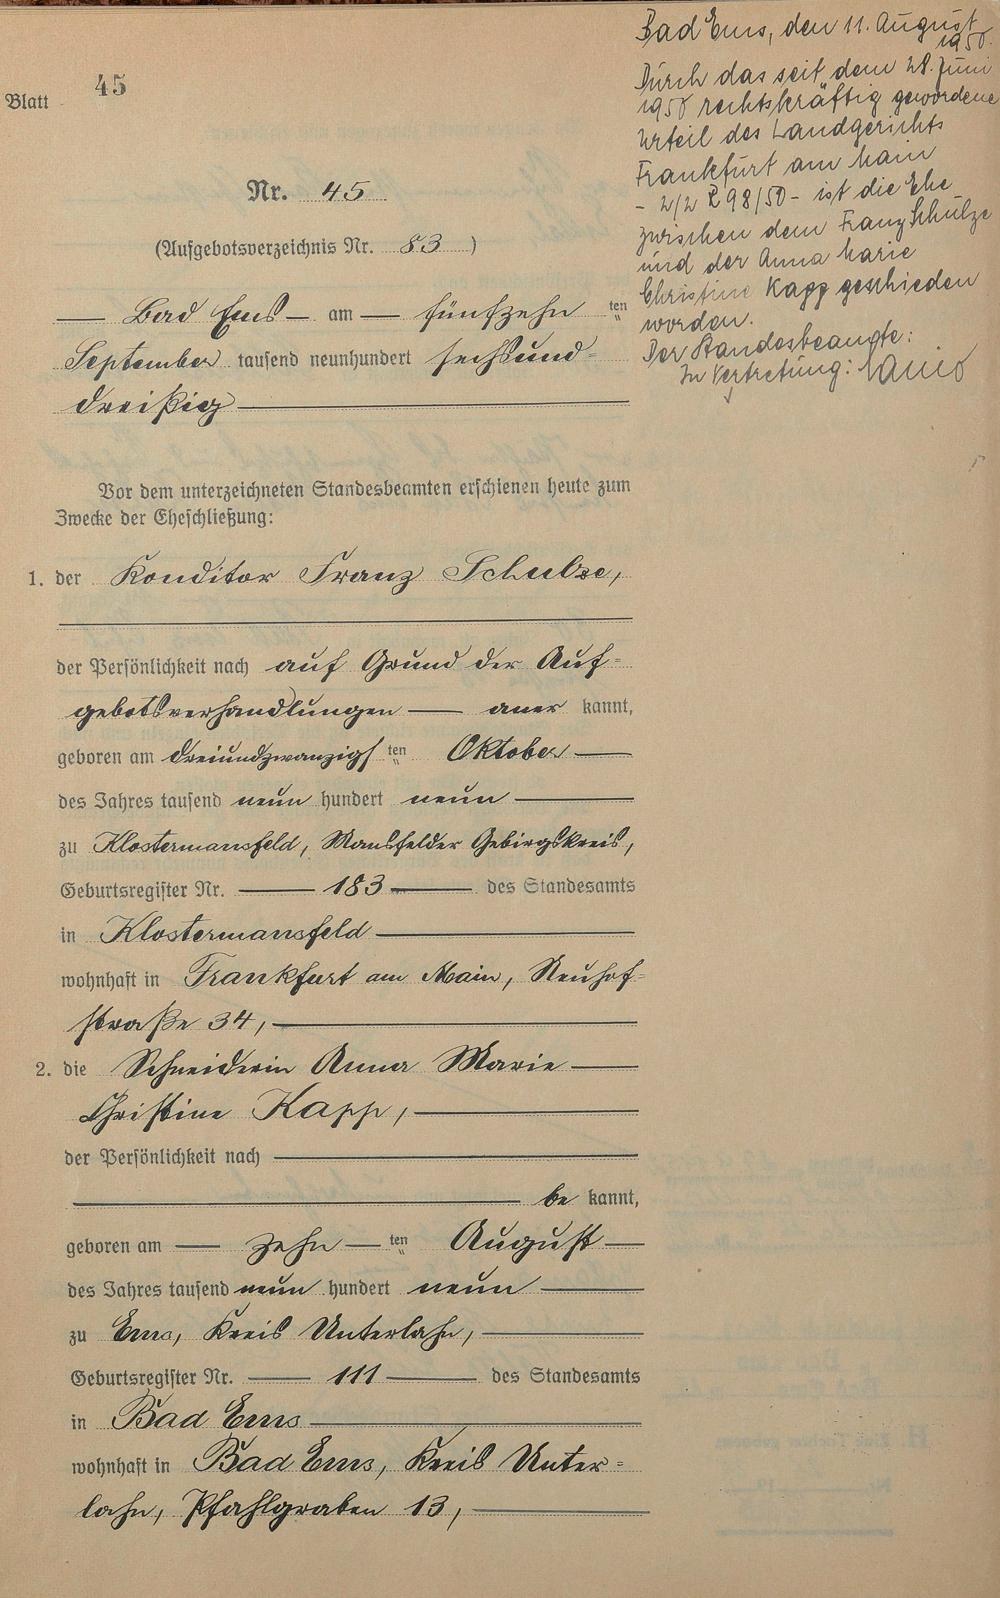 Blatt 45
Nr. 45
(Aufgebotsverzeichnis Nr. 83)
Bad Ems am fünfzehn ten
September tausend neunhundert sechsund-
dreißig
Vor dem unterzeichneten Standesbeamten erschienen heute zum
Zwecke der Eheschließung:
1. der Konditor Franz Schulze,
der Persönlichkeit nach auf Grund der Auf-
gebotsverhandlungen aner kannt,
geboren am dreiundzwanzigs ten Oktober
des Jahres tausend neun hundert neun
zu Klostermansfeld, Mansfelder Gebirgskreis,
Geburtsregister Nr. 183 des Standesamts
in Klostermansfeld
wohnhaft in Frankfurt am Main, Neuhof-
straße 34,
2. die Schneiderin Anna Marie
Christine Kapp,
der Persönlichkeit nach
be kannt,
geboren am zehn ten August
des Jahres tausend neun hundert neun
zu Ems, Kreis Unterlahn,
Geburtsregister Nr. 111 des Standesamts
in Bad Ems
wohnhaft in Bad Ems, Kreis Unter-
lahn, Pfahlgraben 13,
Bad Ems, den 11. August
1950.
Durch das seit dem 28. Juni
1950 rechtskräftig gewordene
Urteil des Landgerichts
Frankfurt am Main
- 2/2 R 98/50 - ist die Ehe
zwischen dem Franz Schulze
und der Anna Marie
Christine Kapp geschieden
worden.
Der Standesbeamte:
In Vertretung: